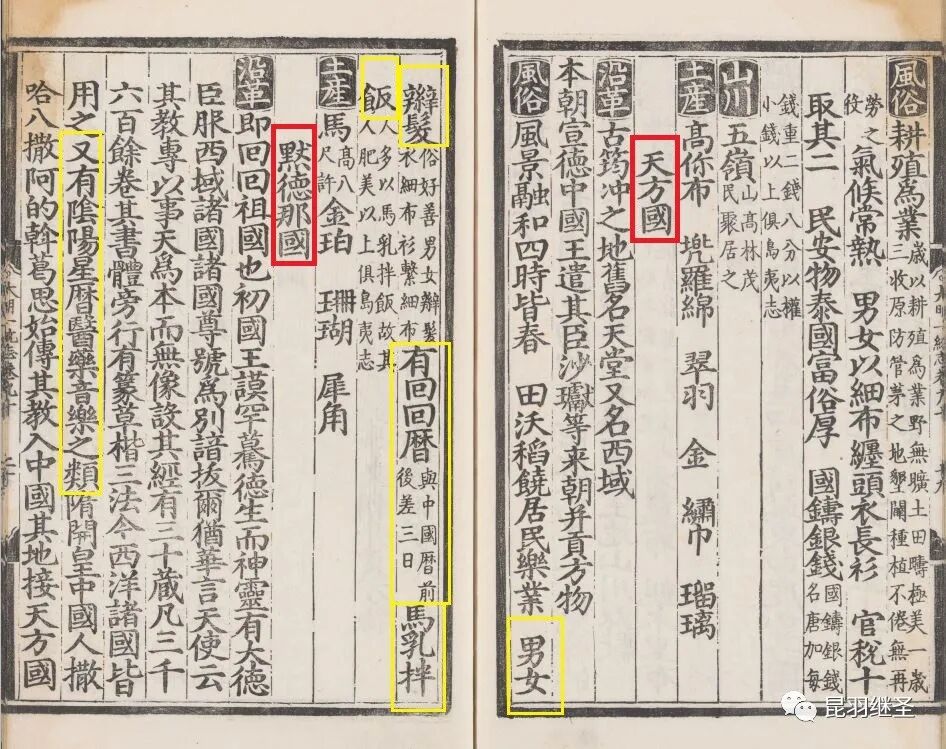 風俗 耕殖爲業 歲以耕殖爲業野無曠土田疇極美一歲三收原防管茅之地墾闢種植不倦無再
勞之役 氣候常熱 男女以細布纏頭衣長衫 官稅十
取其二 民安物泰國富俗厚 國鑄銀錢 國鑄銀錢名唐加每
錢重二錢八分以權小錢以上俱島夷志
山川 五嶺 山高林茂民聚居之
土産 高你布 兠羅綿 翠羽 金 繡巾 瑠璃
天方國
沿革 古筠冲之地舊名天堂又名西域
本朝宣德中國王遣其臣沙瓛等来朝并貢方物
風俗 風景融和四時皆春 田沃稻饒居民樂業 男女
辮髮 俗好善男女辮髮衣細布衫繫細布 有回回曆 與中國曆前後差三日 馬乳拌
飯 人多以馬乳拌飯故其人肥美以上俱島夷志
土産 馬 高八尺許 金珀 珊瑚 犀角
默德那國
沿革 即回回祖國也初國王謨罕驀德生而神靈有大德
臣服西域諸國諸國尊號爲别諳拔爾猶華言天使云
其教專以事天爲本而無像設其經有三十藏凡三千
六百餘卷其書體旁行有篆草楷三法今西洋諸國皆
用之又有陰陽星曆醫藥音樂之類隋開皇中國人撒
哈八撒阿的斡葛思始傳其教入中國其地接天方國
昆羽继圣